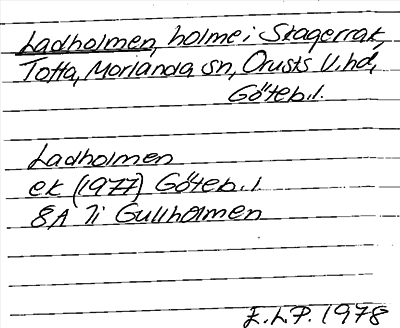 Ladholmen, holme i Skagerrak,
Totta, Morlanda sn, Orusts V. hd,
Göteb. l.
Ladholmen
ek (1977) Göteb. l
8A 7i Gullholmen
E.L.P. 1978